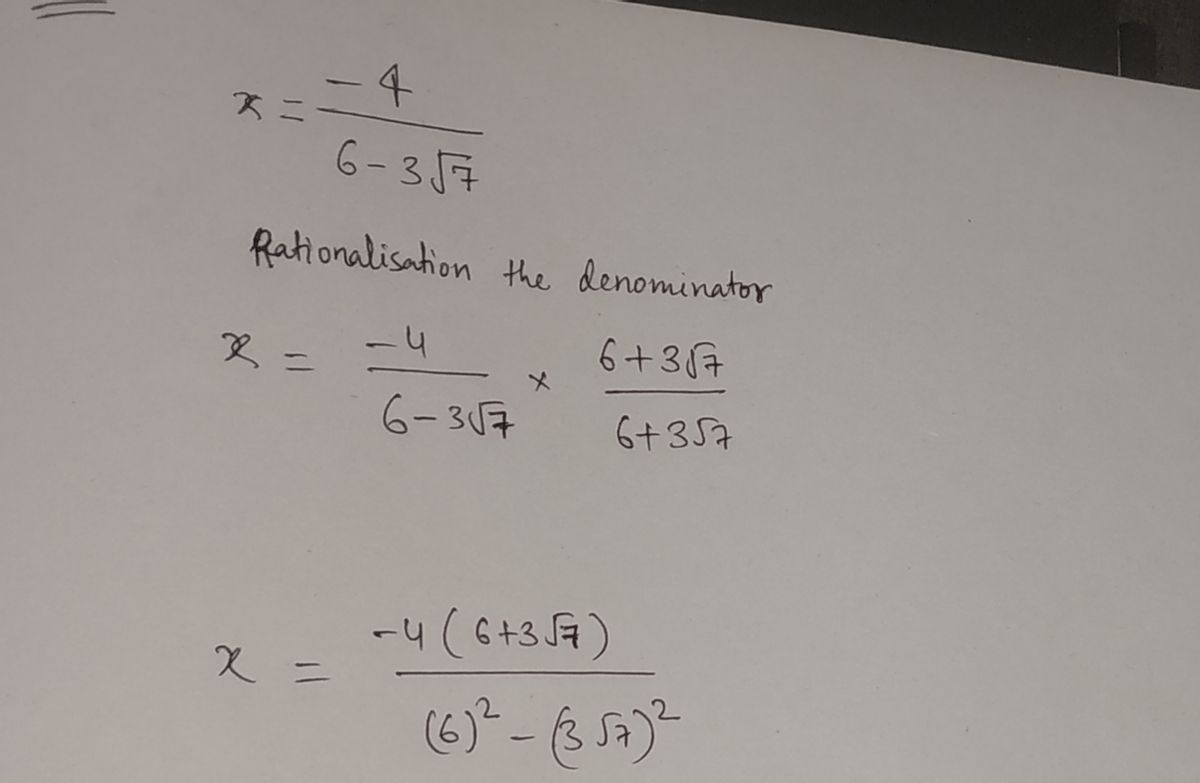 x = -4 / 6-3√7
Rationalisation the denominator
x = -4 / 6-3√7 × 6+3√7 / 6+3√7
x = -4(6+3√7) / (6)² - (3√7)²